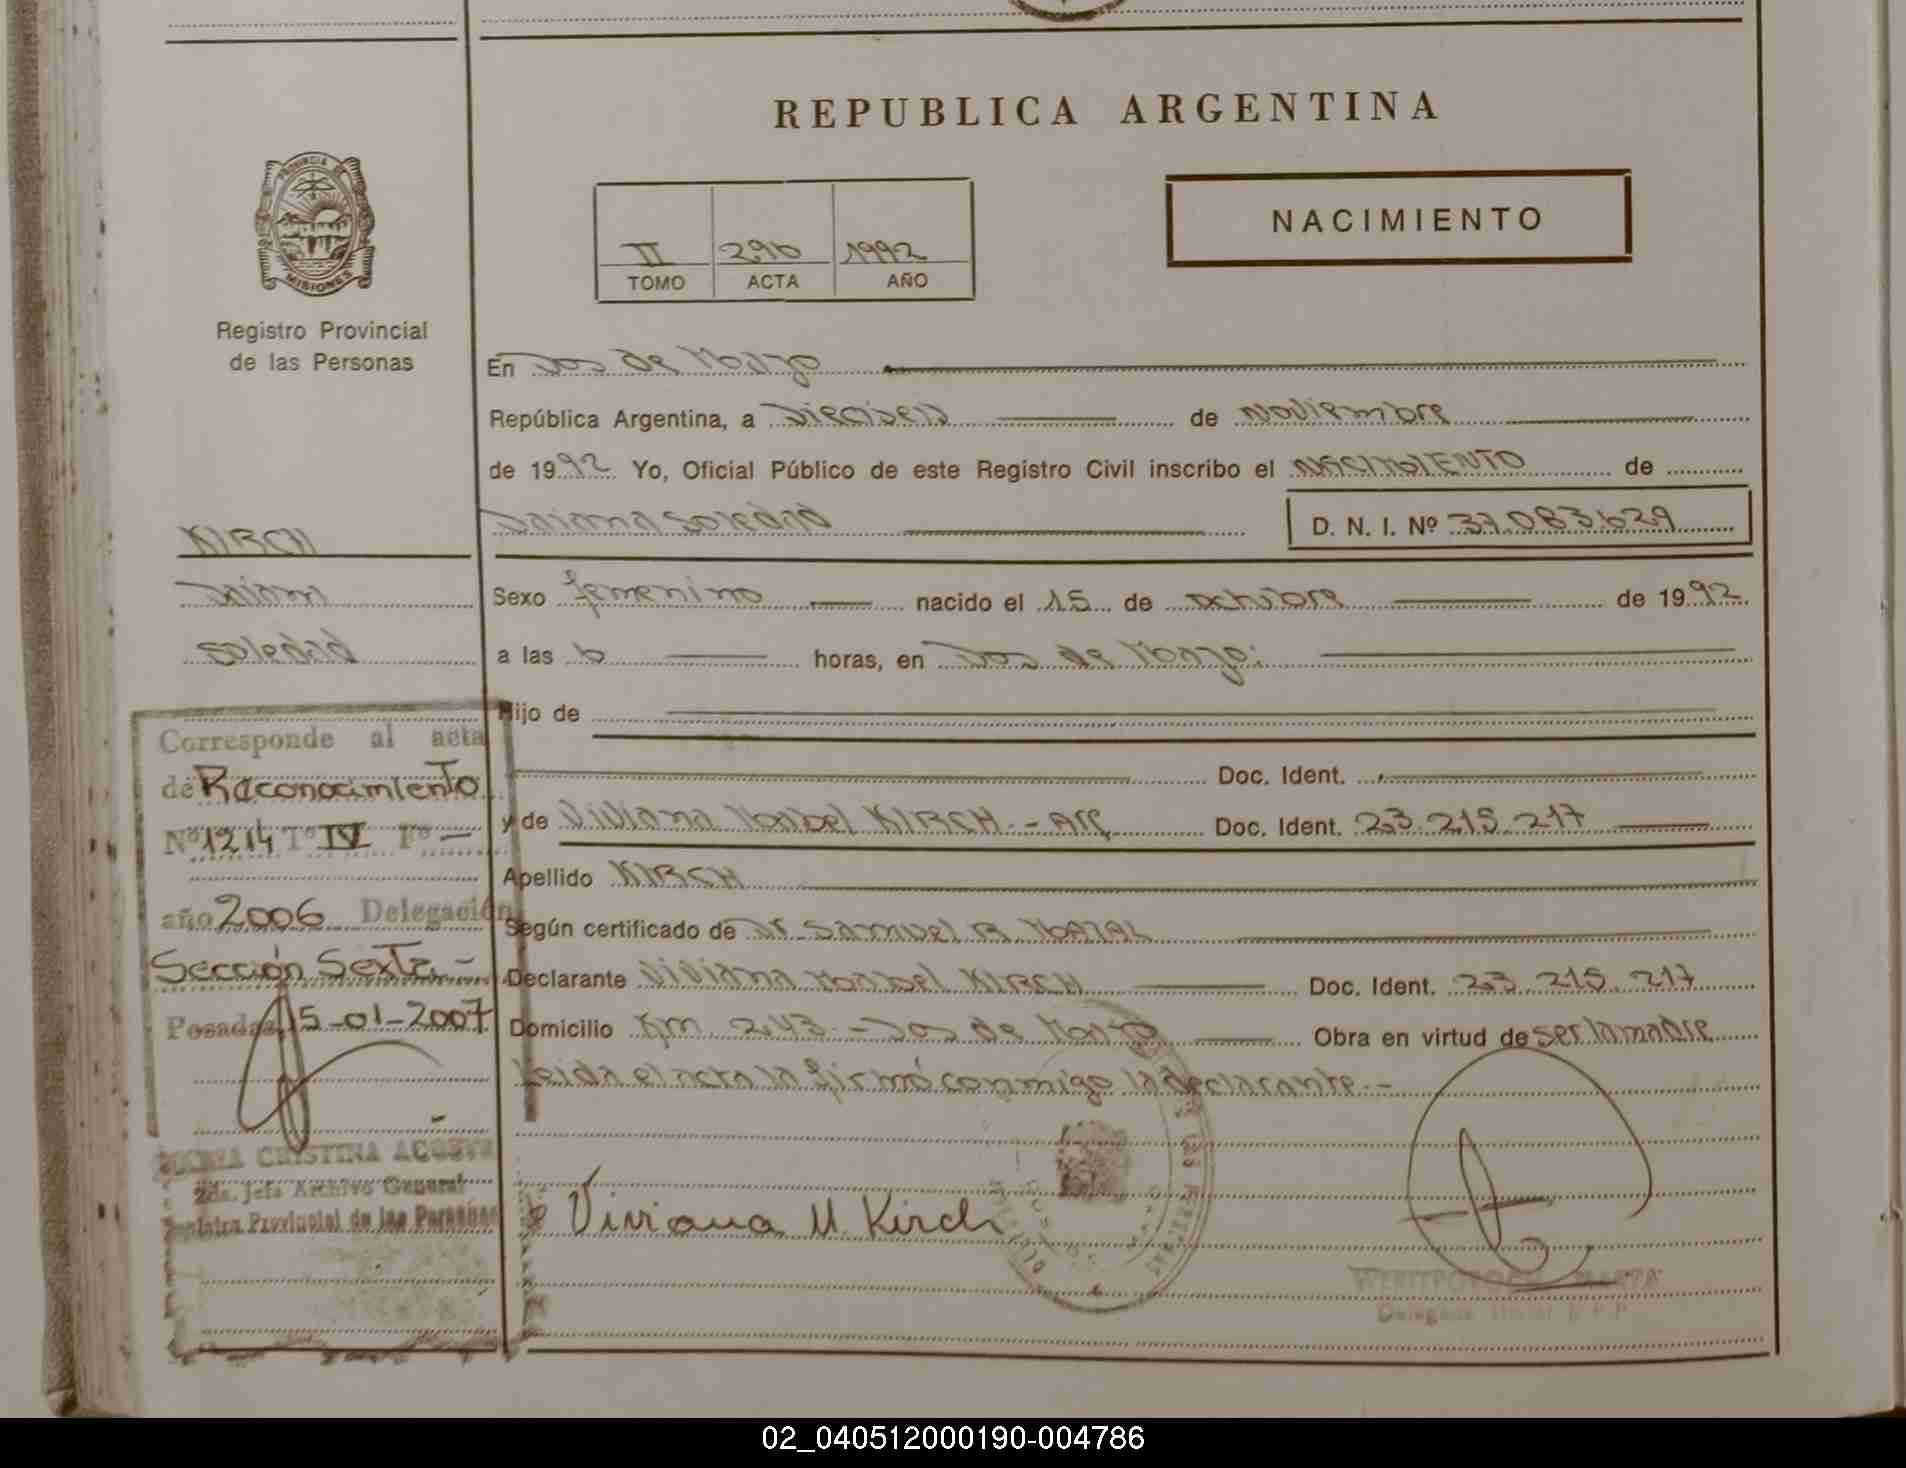 REPUBLICA ARGENTINA
PROVINCIA DE
MISIONES
Registro Provincial
de las Personas
NACIMIENTO
II 296 1992
TOMO ACTA AÑO
En Dos de Mayo
República Argentina, a Dieciseis de noviembre
de 1992 Yo, Oficial Público de este Registro Civil inscribo el NACIMIENTO de
Daiana Soledad D. N. I. Nº 37.083.629
KIRCH
Daiana
Soledad
Sexo femenino nacido el 15 de octubre de 1992
a las 6 horas, en Dos de Mayo.
Hijo de
Doc. Ident.
y de Viviana Mabel KIRCH - Arg Doc. Ident. 23.215.217
Apellido KIRCH
Según certificado de Dr. Samuel R.
Declarante Viviana Mabel KIRCH Doc. Ident. 23.215.217
Domicilio Km. 243 - Dos de Mayo Obra en virtud de ser la madre
Leida el acta la firmó conmigo la declarante.-
Corresponde al acta
de Reconocimiento
Nº 1214 Tº IV Fº —
año 2006 Delegación
Sección Sexta -
Posadas, 15-01-2007
MARIA CRISTINA ACOSTA
2da. Jefa Archivo General
Registro Provincial de las Personas
Viviana M. Kirch
MARTA
Delegada Titular R.P.P.
02_040512000190-004786